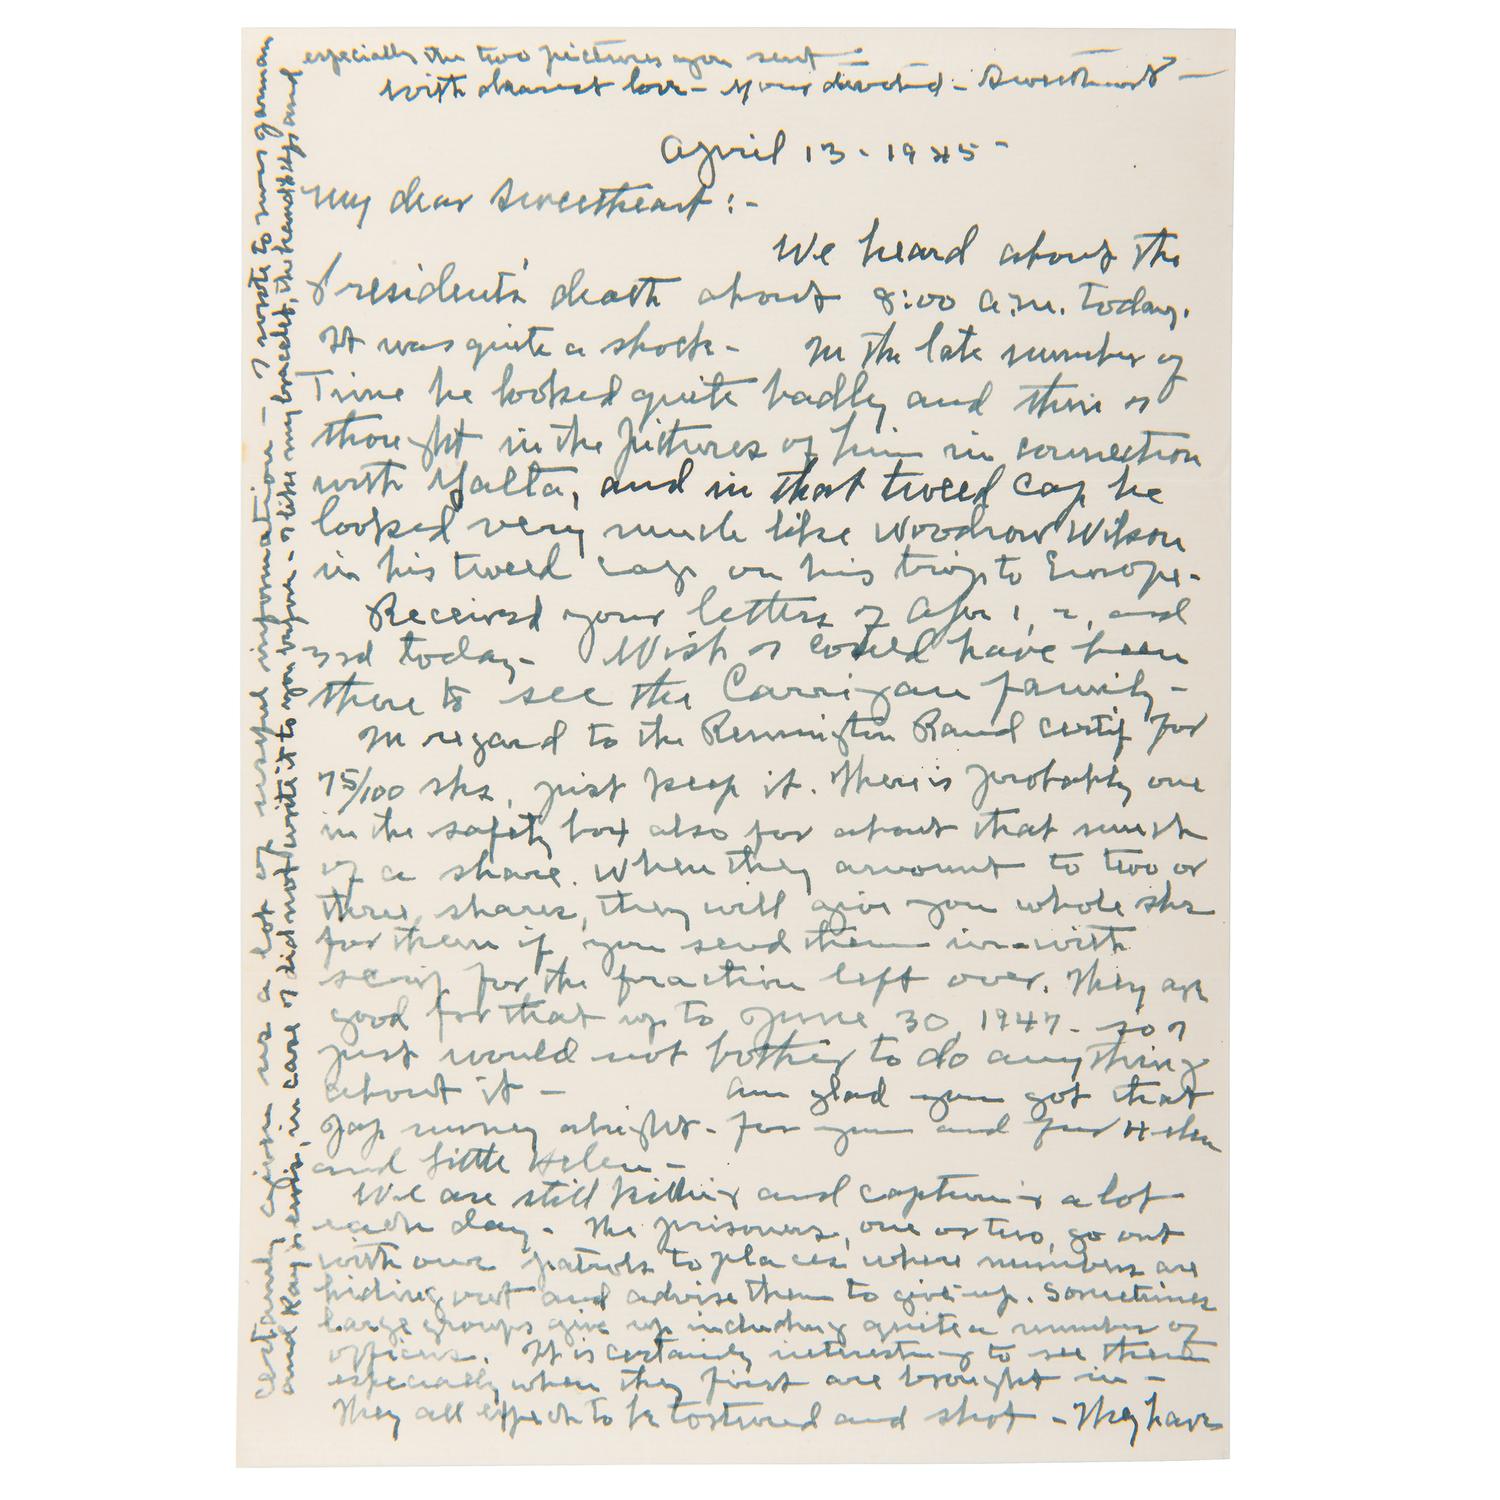 especially the two pictures you sent.
With dearest love - Your devoted - Sweetheart -
April 13 - 1945 -
My dear Sweetheart :-
We heard about the
President's death about 8:00 a.m. today.
It was quite a shock - In the late number of
Time he looked quite badly and then I
thought in the pictures of him in connection
with Yalta, and in that tweed cap he
looked very much like Woodrow Wilson
in his tweed cap on his trip to Europe -
Received your letters of Apr 1, 2, and
3rd today - Wish I could have been
there to see the Carrigan family -
In regard to the Remington Rand certif for
75/100 shs, just keep it. There is probably one
in the safety box also for about that much
of a share. When they amount to two or
three shares, they will give you whole shs
for them if you send them in - with
scrip for the fraction left over. They are
good for that up to June 30, 1947 - so I
just would not bother to do anything
about it - Am glad you got that
Jap money alright - for you and for Helen
and little Helen -
We are still killing and capturing a lot
each day - The prisoners, one or two, go out
with our patrols to places where numbers are
hiding out and advise them to give up. Sometimes
large groups give up including quite a number of
officers. It is certainly interesting to see them
especially when they first are brought in -
They all expect to be tortured and shot - They have
certainly given us a lot of useful information - I wrote to
and Ray Lewis, in case I did not write it to you before - I like my bracelet, the and